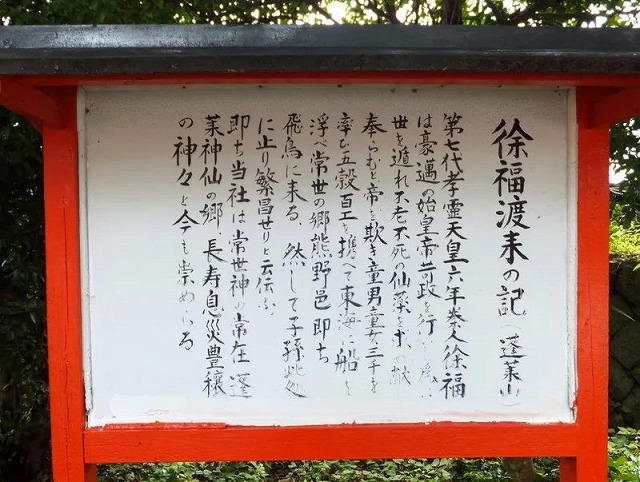 徐福渡来の記（蓬萊山）
第七代孝霊天皇六年秦人徐福
は豪邁の始皇帝苛政を行
世を遁れ不老不死の仙薬を求 献
奉らむと帝を欺き童男童女三千を
率む五穀百工を携へて東海に船を
浮べ常世の郷熊野邑即ち
飛鳥に来る、然して子孫此処
に止り繁昌せりと云伝ふ、
即ち当社は常世神の常在蓬
莱神仙の郷、長寿息災豊穣
の神々と今も崇めらる